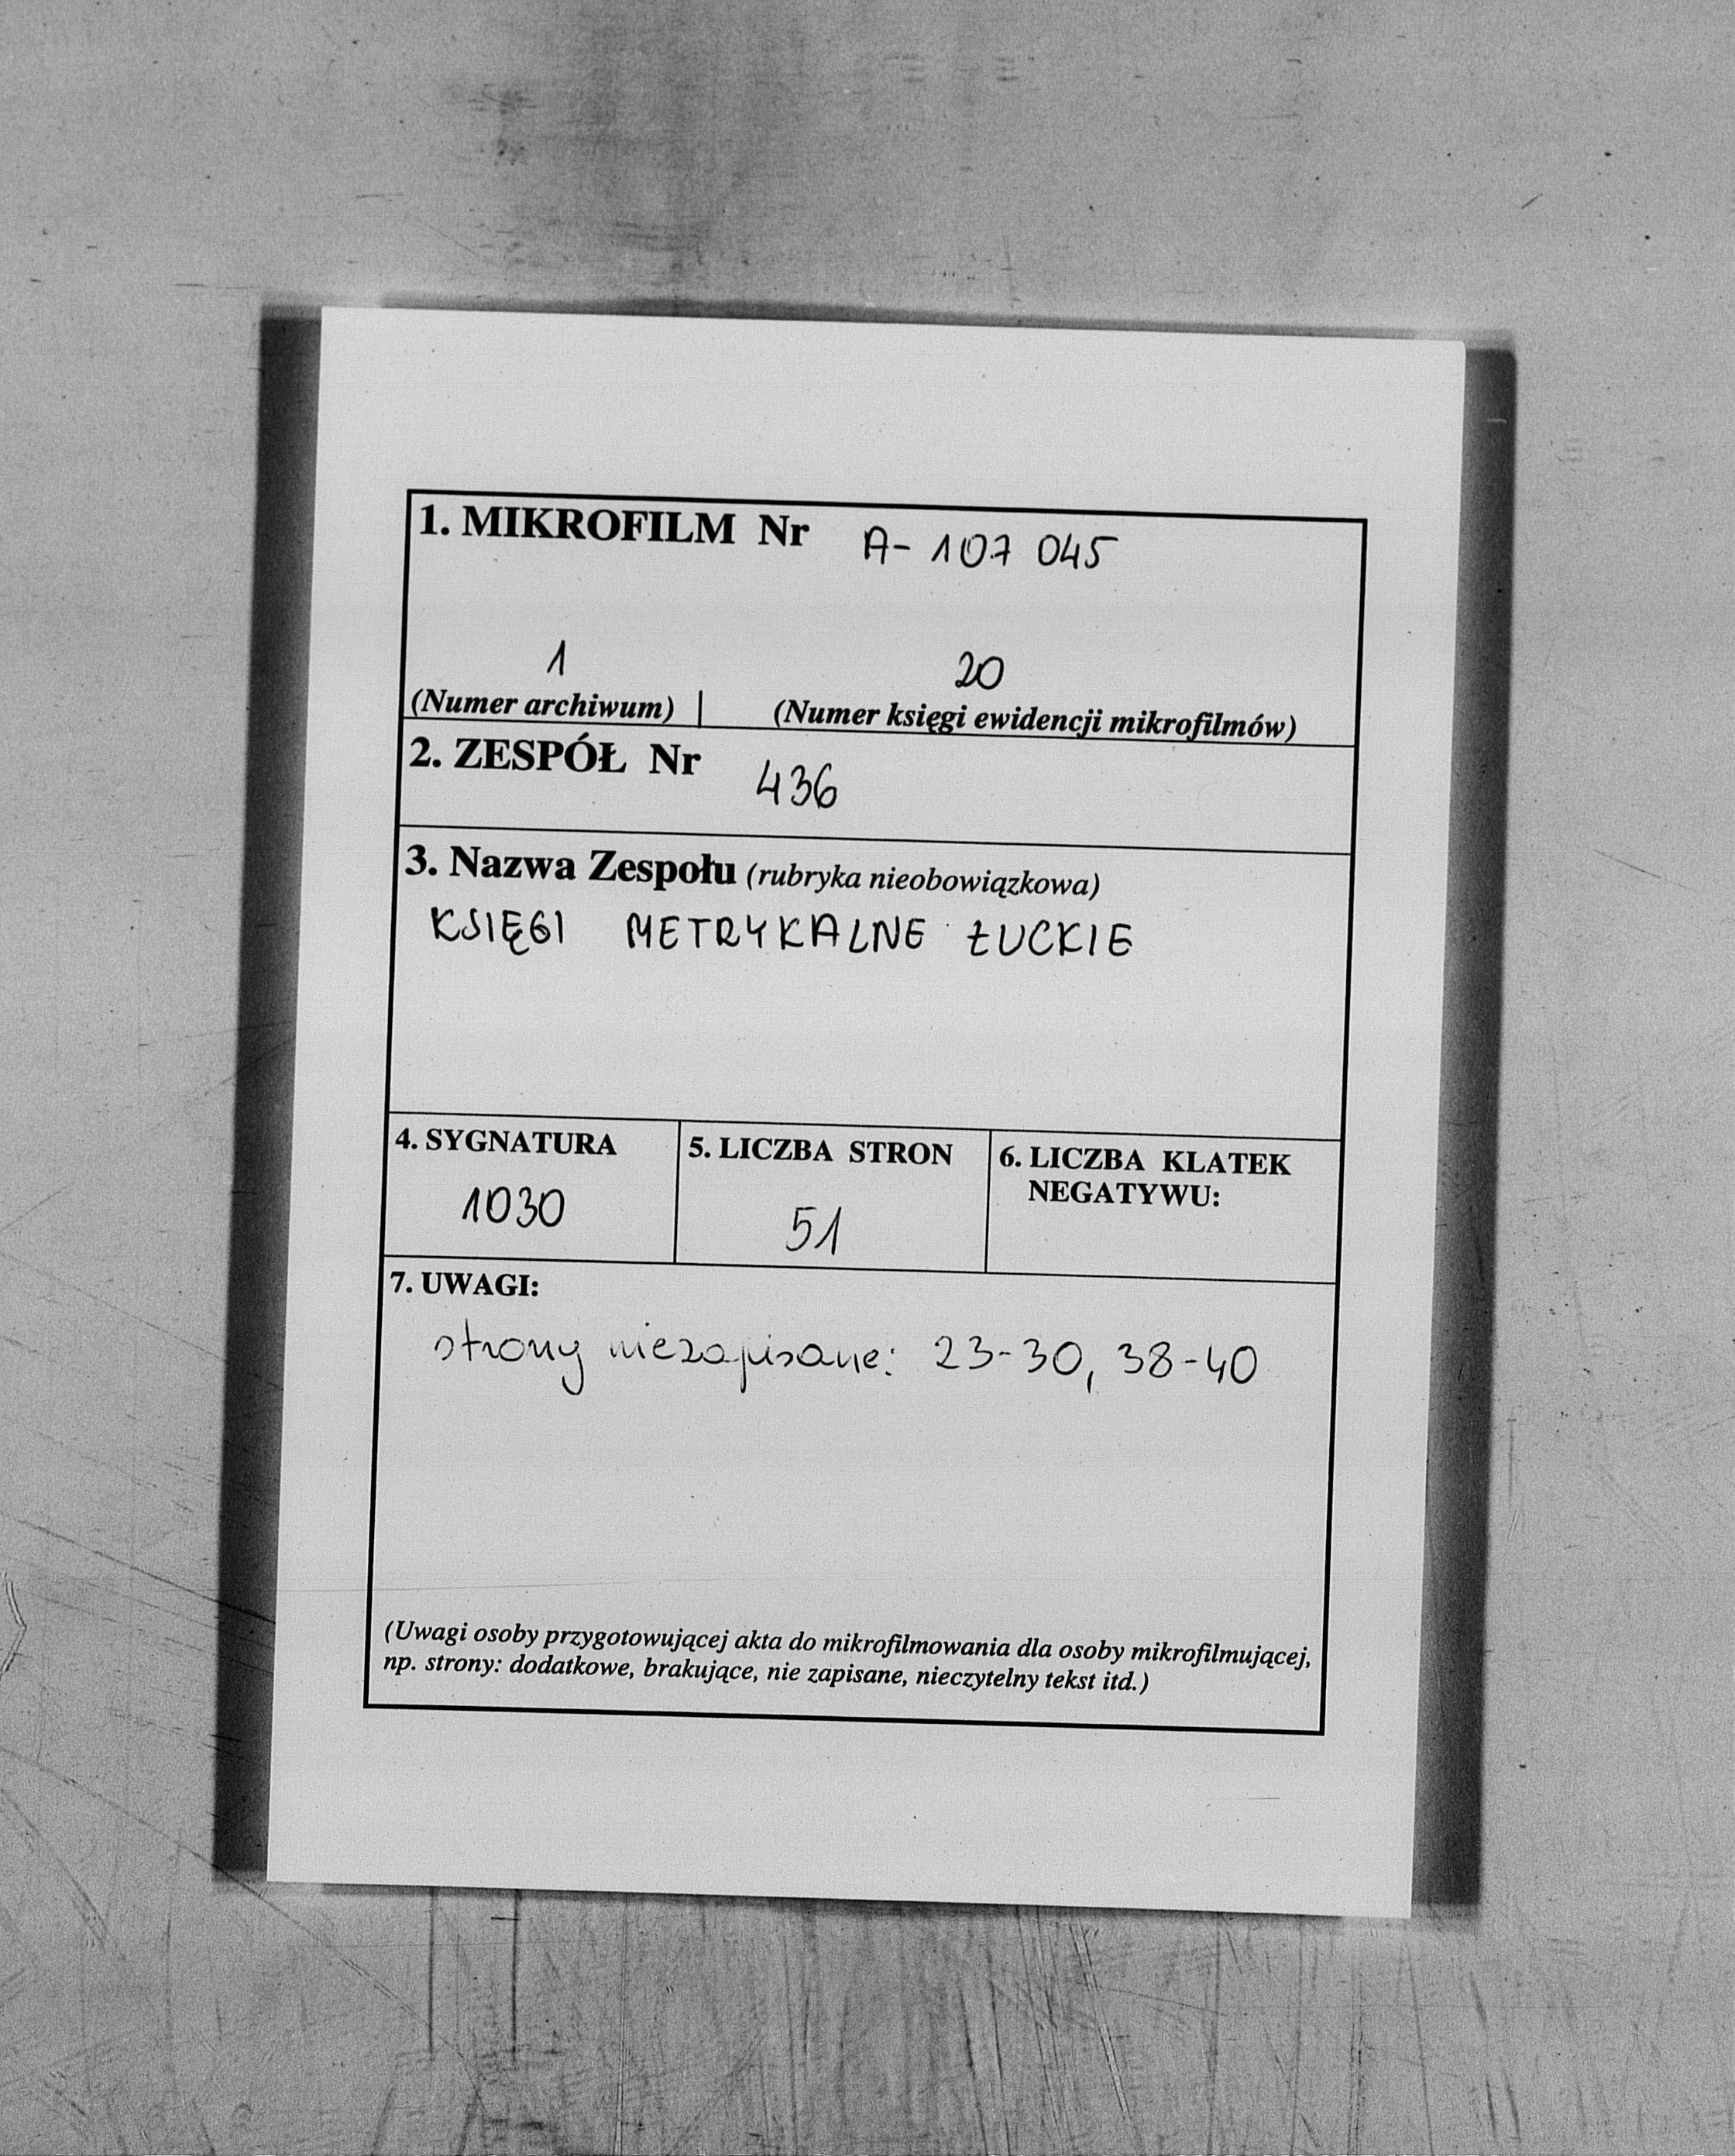 1. MIKROFILM Nr A- 107 045
1 20
(Numer archiwum) | (Numer księgi ewidencji mikrofilmów)
2. ZESPÓŁ Nr 436
3. Nazwa Zespołu (rubryka nieobowiązkowa)
KSIĘGI METRYKALNE ŁUCKIE
4. SYGNATURA 5. LICZBA STRON 6. LICZBA KLATEK
NEGATYWU:
1030 51
7. UWAGI:
strony niezapisane: 23-30, 38-40
(Uwagi osoby przygotowującej akta do mikrofilmowania dla osoby mikrofilmującej,
np. strony: dodatkowe, brakujące, nie zapisane, nieczytelny tekst itd.)